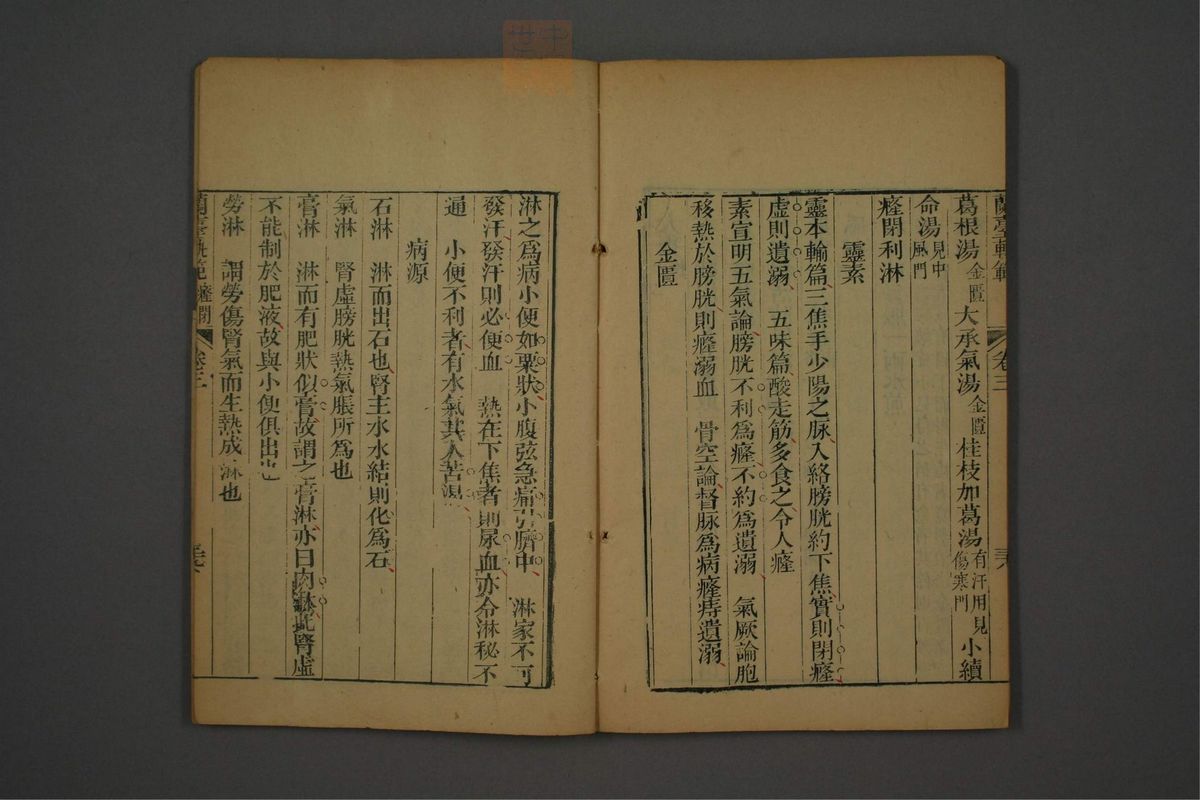 蘭臺軌範 卷三
葛根湯金匱 大承氣湯金匱 桂枝加葛湯有汗用見傷寒門 小續
命湯見中風門
癃閉利淋
靈素
靈本輸篇三焦手少陽之脉入絡膀胱約下焦實則閉癃
虛則遺溺 五味篇酸走筋多食之令人癃
素宣明五氣論膀胱不利爲癃不約爲遺溺 氣厥論胞
移熱於膀胱則癃溺血 骨空論督脉爲病癃痔遺溺
金匱
淋之爲病小便如粟狀小腹弦急痛引臍中 淋家不可
發汗發汗則必便血 熱在下焦者則尿血亦令淋秘不
通 小便不利者有水氣其人苦渴
病源
石淋 淋而出石也腎主水水結則化爲石
氣淋 腎虛膀胱熱氣脹所爲也
膏淋 淋而有肥狀似膏故謂之膏淋亦曰肉淋此腎虛
不能制於肥液故與小便俱出也
勞淋 謂勞傷腎氣而生熱成淋也
蘭臺軌範 癃閉 卷三